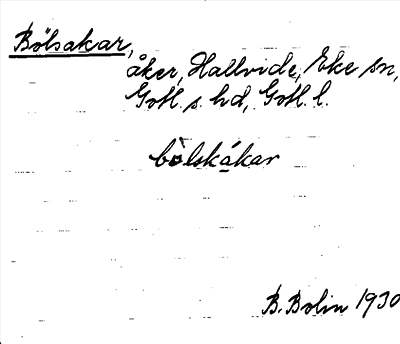 Bölsakar,
åker, Hallvide, Eke sn,
Gotl. s. hd, Gotl. l.
bölskákar
B. Bolin 1930